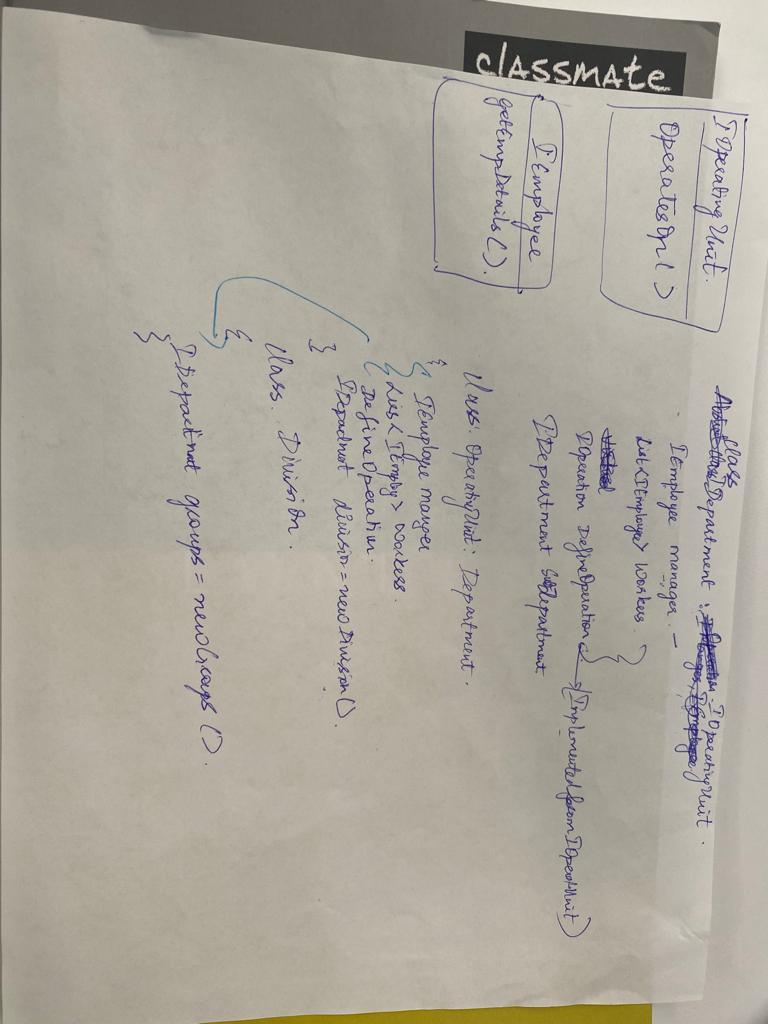 classmate
IOperatingUnit.
OperatesOn()
IEmployee
getEmpDetails().
class
Department : IOperatingUnit.
IEmployee manager. -
List<IEmployee> workers.
IOperation DefineOperation
}
(ImplementedfromIOperatUnit)
IDepartment SubDepartment
Class: OperatingUnit: Department.
{
IEmployee manger
List<IEmploy> workess.
DefineOperation.
IDepartment division = new Division().
}
Class. Division.
{
IDepartmnet groups = newGroups().
}